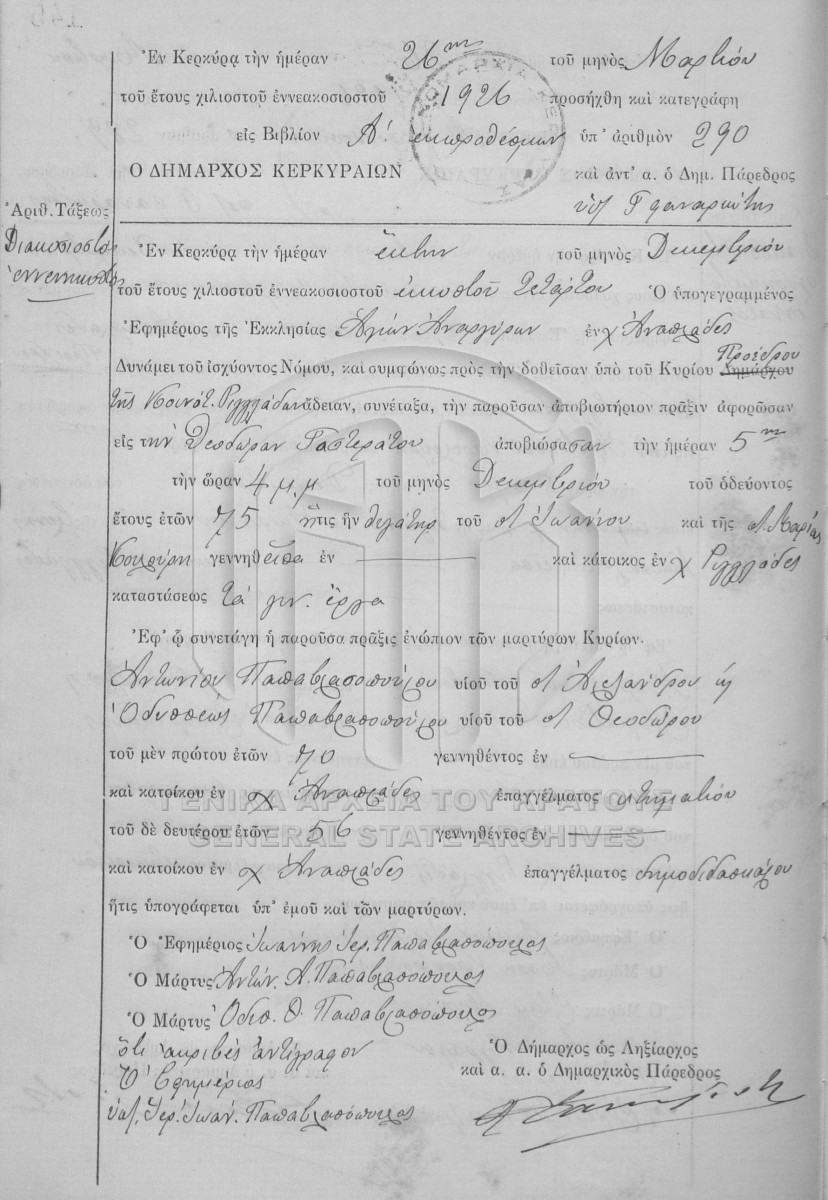 Ἐν Κερκύρᾳ τὴν ἡμέραν 26ην τοῦ μηνὸς Μαρτίου
τοῦ ἔτους χιλιοστοῦ ἐννεακοσιοστοῦ 1926 προσήχθη καὶ κατεγράφη
εἰς Βιβλίον Α' ἐκπροθέσμων ὑπ' ἀριθμὸν 290
Ο ΔΗΜΑΡΧΟΣ ΚΕΡΚΥΡΑΙΩΝ καὶ ἀντ' α. ὁ Δημ. Πάρεδρος
Ἀριθ. Τάξεως
Διακοσιοστὸς
ἐννενηκοστὸς
Ἐν Κερκύρᾳ τὴν ἡμέραν ἕκτην τοῦ μηνὸς Δεκεμβρίου
τοῦ ἔτους χιλιοστοῦ ἐννεακοσιοστοῦ εἰκοστοῦ τετάρτου Ὁ ὑπογεγραμμένος
Ἐφημέριος τῆς Ἐκκλησίας Ἁγίων Ἀναργύρων ἐν χ Ἀναπλάδες
Δυνάμει τοῦ ἰσχύοντος Νόμου, καὶ συμφώνως πρὸς τὴν δοθεῖσαν ὑπὸ τοῦ Κυρίου Δημάρχου Προέδρου
τῆς Κοινότ. Ριγγλάδων ἄδειαν, συνέταξα, τὴν παροῦσαν ἀποβιωτήριον πρᾶξιν ἀφορῶσαν
εἰς τὴν Θεοδώραν Γαστεράτου ἀποβιώσασαν τὴν ἡμέραν 5ην
τὴν ὥραν 4 μ.μ τοῦ μηνὸς Δεκεμβρίου τοῦ ὁδεύοντος
ἔτους ἐτῶν 75 ἥτις ἦν θυγάτηρ τοῦ Ἰωάννου καὶ τῆς Μαρίας
γεννηθεῖσα ἐν καὶ κάτοικος ἐν χ Ριγγλάδες
καταστάσεως τὰ γυν. ἔργα
Ἐφ' ᾧ συνετάγη ἡ παροῦσα πρᾶξις ἐνώπιον τῶν μαρτύρων Κυρίων.
Ἀντωνίου Παπαβλασοπούλου υἱοῦ τοῦ Ἀλεξάνδρου
Ὀδυσσέως Παπαβλασοπούλου υἱοῦ τοῦ Θεοδώρου
τοῦ μὲν πρώτου ἐτῶν 70 γεννηθέντος ἐν
καὶ κατοίκου ἐν χ Ἀναπλάδες ἐπαγγέλματος κτηματίου
ΓΕΝΙΚΑ ΑΡΧΕΙΑ ΤΟΥ ΚΡΑΤΟΥΣ
τοῦ δὲ δευτέρου ἐτῶν 56 γεννηθέντος ἐν
GENERAL STATE ARCHIVES
καὶ κατοίκου ἐν χ Ἀναπλάδες ἐπαγγέλματος δημοδιδασκάλου
ἥτις ὑπογράφεται ὑπ' ἐμοῦ καὶ τῶν μαρτύρων.
Ὁ Ἐφημέριος Ἰωάννης Ἱερ. Παπαβλασόπουλος
Ὁ Μάρτυς Ἀντών. Α. Παπαβλασόπουλος
Ὁ Μάρτυς Ὀδυσ. Θ. Παπαβλασόπουλος
ὅτι ἀκριβὲς ἀντίγραφον
Ὁ Ἐφημέριος
ὑπ. Ἱερ. Ἰωάν. Παπαβλασόπουλος
Ὁ Δήμαρχος ὡς Ληξίαρχος
καὶ α. α. ὁ Δημαρχικὸς Πάρεδρος